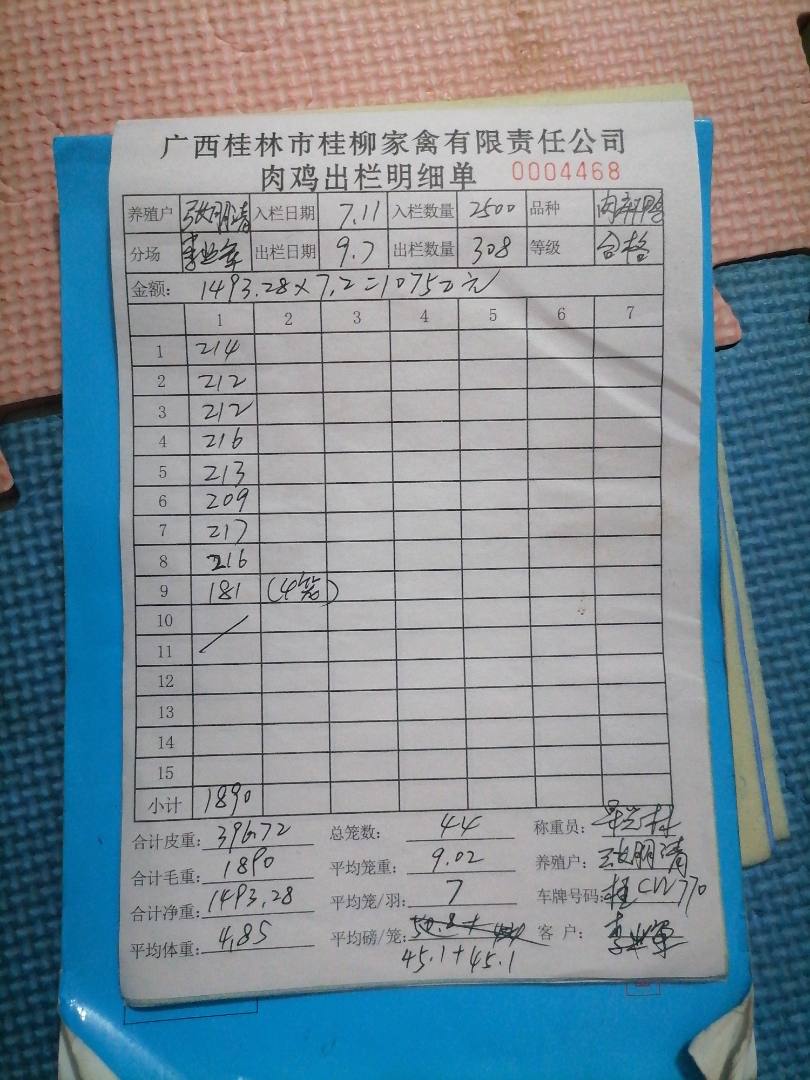 广西桂林市桂柳家禽有限责任公司
肉鸡出栏明细单 0004468
养殖户 张朋清 入栏日期 7.11 入栏数量 2500 品种
分场 出栏日期 9.7 出栏数量 308 等级 合格
金额: 1493.28×7.2=10752元
1 2 3 4 5 6 7
1 214
2 212
3 212
4 216
5 213
6 209
7 217
8 216
9 181 (4笼)
10
11
12
13
14
15
小计 1890
合计皮重: 396.72 总笼数: 44 称重员:
合计毛重: 1890 平均笼重: 9.02 养殖户: 张朋清
合计净重: 1493.28 平均笼/羽: 7 车牌号码: 桂CW770
平均体重: 4.85 平均磅/笼: 客 户:
45.1+45.1